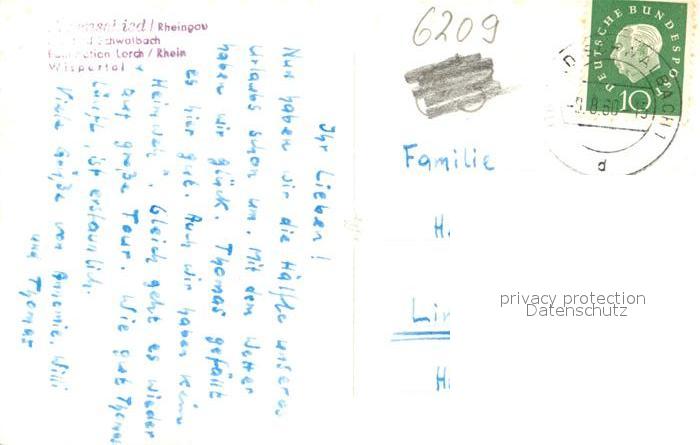 / Rheingau
Schwalbach
Lorch / Rhein
Wispertal
6209
DEUTSCHE BUNDESPOST
10
d
Familie
H
Lin
H
privacy protection
Datenschutz
Ihr Lieben!
Nun haben wir die Hälfte unseres
Urlaubs schon um. Mit dem Wetter
haben wir Glück. Thomas gefällt
es hier gut. Auch wir haben kein
"Heimweh". Gleich geht es wieder
auf große Tour. Wie gut Thomas
läuft, ist erstaunlich.
Viele Grüße von Annemie, Willi
und Thomas